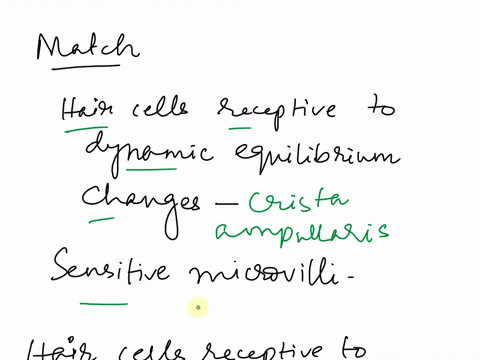 Match
Hair cells receptive to
dynamic equilibrium
changes – Crista
ampullaris
Sensitive microvilli -
Hair cells receptive to